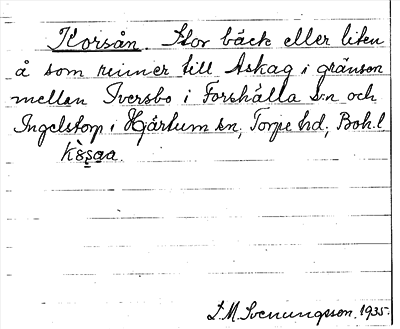 Korsån. Stor bäck eller liten
å som rinner till Askag i gränsen
mellan Iversbo i Forshälla s:n och
Ingelstorp i Hjärtum sn, Torpe hd, Boh. l
S. M. Svenungsson. 1935.